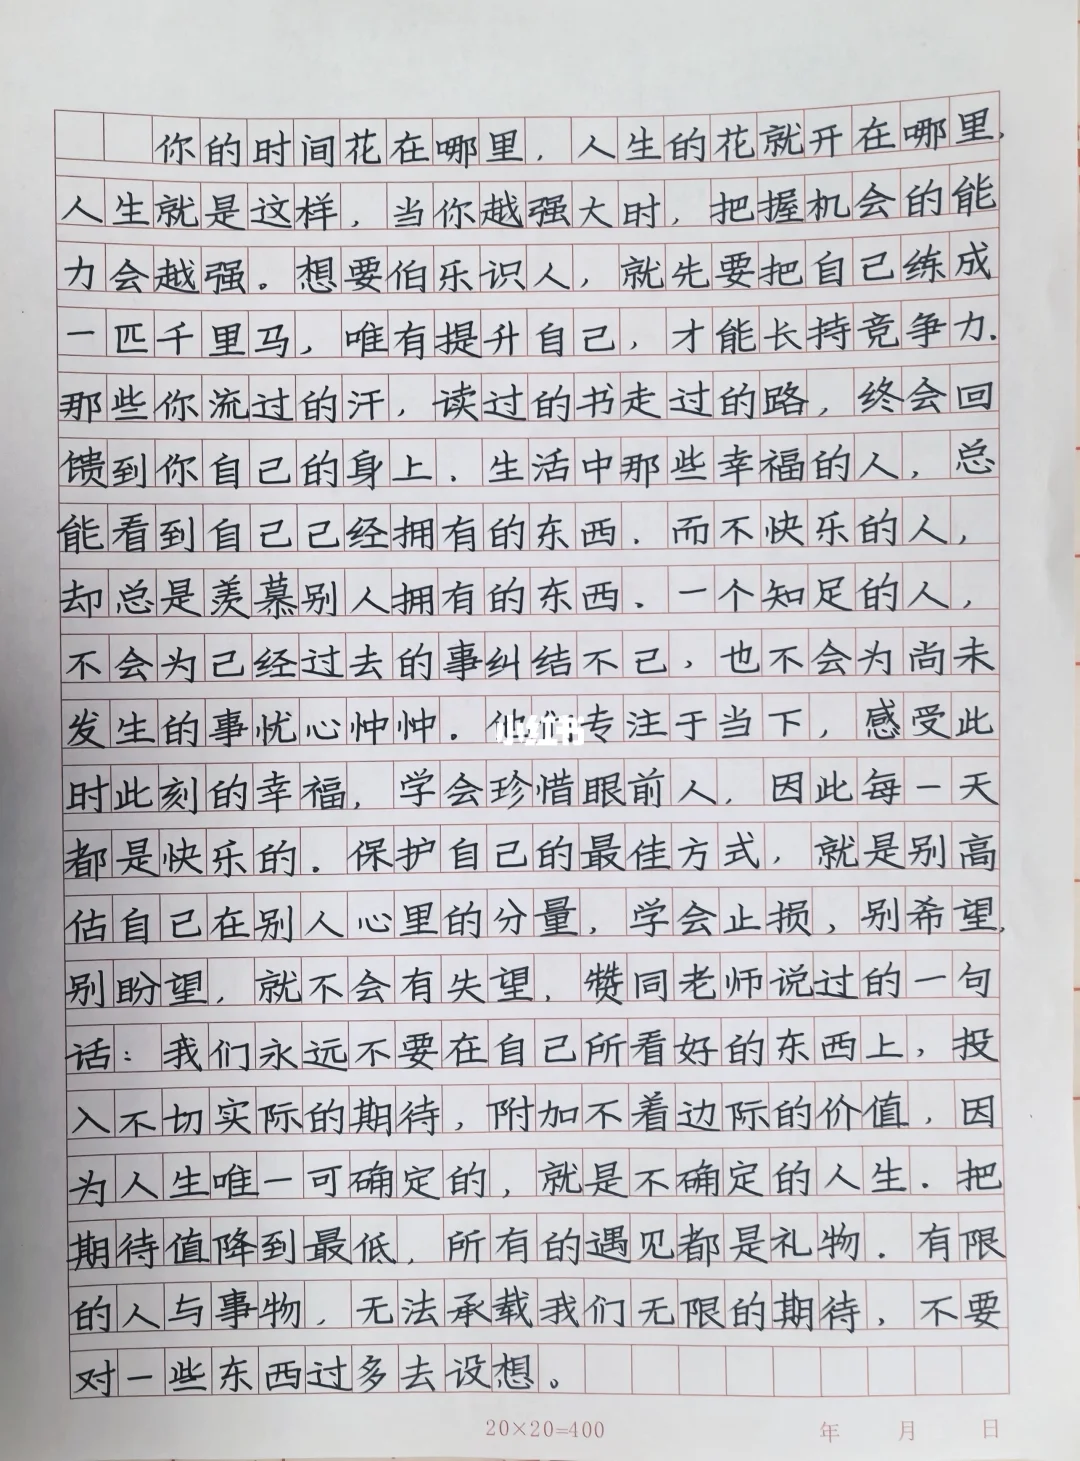 你的时间花在哪里，人生的花就开在哪里，
人生就是这样，当你越强大时，把握机会的能
力会越强。想要伯乐识人，就先要把自己练成
一匹千里马，唯有提升自己，才能长持竞争力.
那些你流过的汗，读过的书走过的路，终会回
馈到你自己的身上.生活中那些幸福的人，总
能看到自己己经拥有的东西.而不快乐的人，
却总是羡慕别人拥有的东西.一个知足的人，
不会为己经过去的事纠结不己，也不会为尚未
发生的事忧心忡忡.他们专注于当下，感受此
时此刻的幸福，学会珍惜眼前人，因此每一天
都是快乐的.保护自己的最佳方式，就是别高
估自己在别人心里的分量，学会止损，别希望，
别盼望，就不会有失望，赞同老师说过的一句
话：我们永远不要在自己所看好的东西上，投
入不切实际的期待，附加不着边际的价值，因
为人生唯一可确定的，就是不确定的人生.把
期待值降到最低，所有的遇见都是礼物.有限
的人与事物，无法承载我们无限的期待，不要
对一些东西过多去设想。
小红书
20×20=400 年 月 日